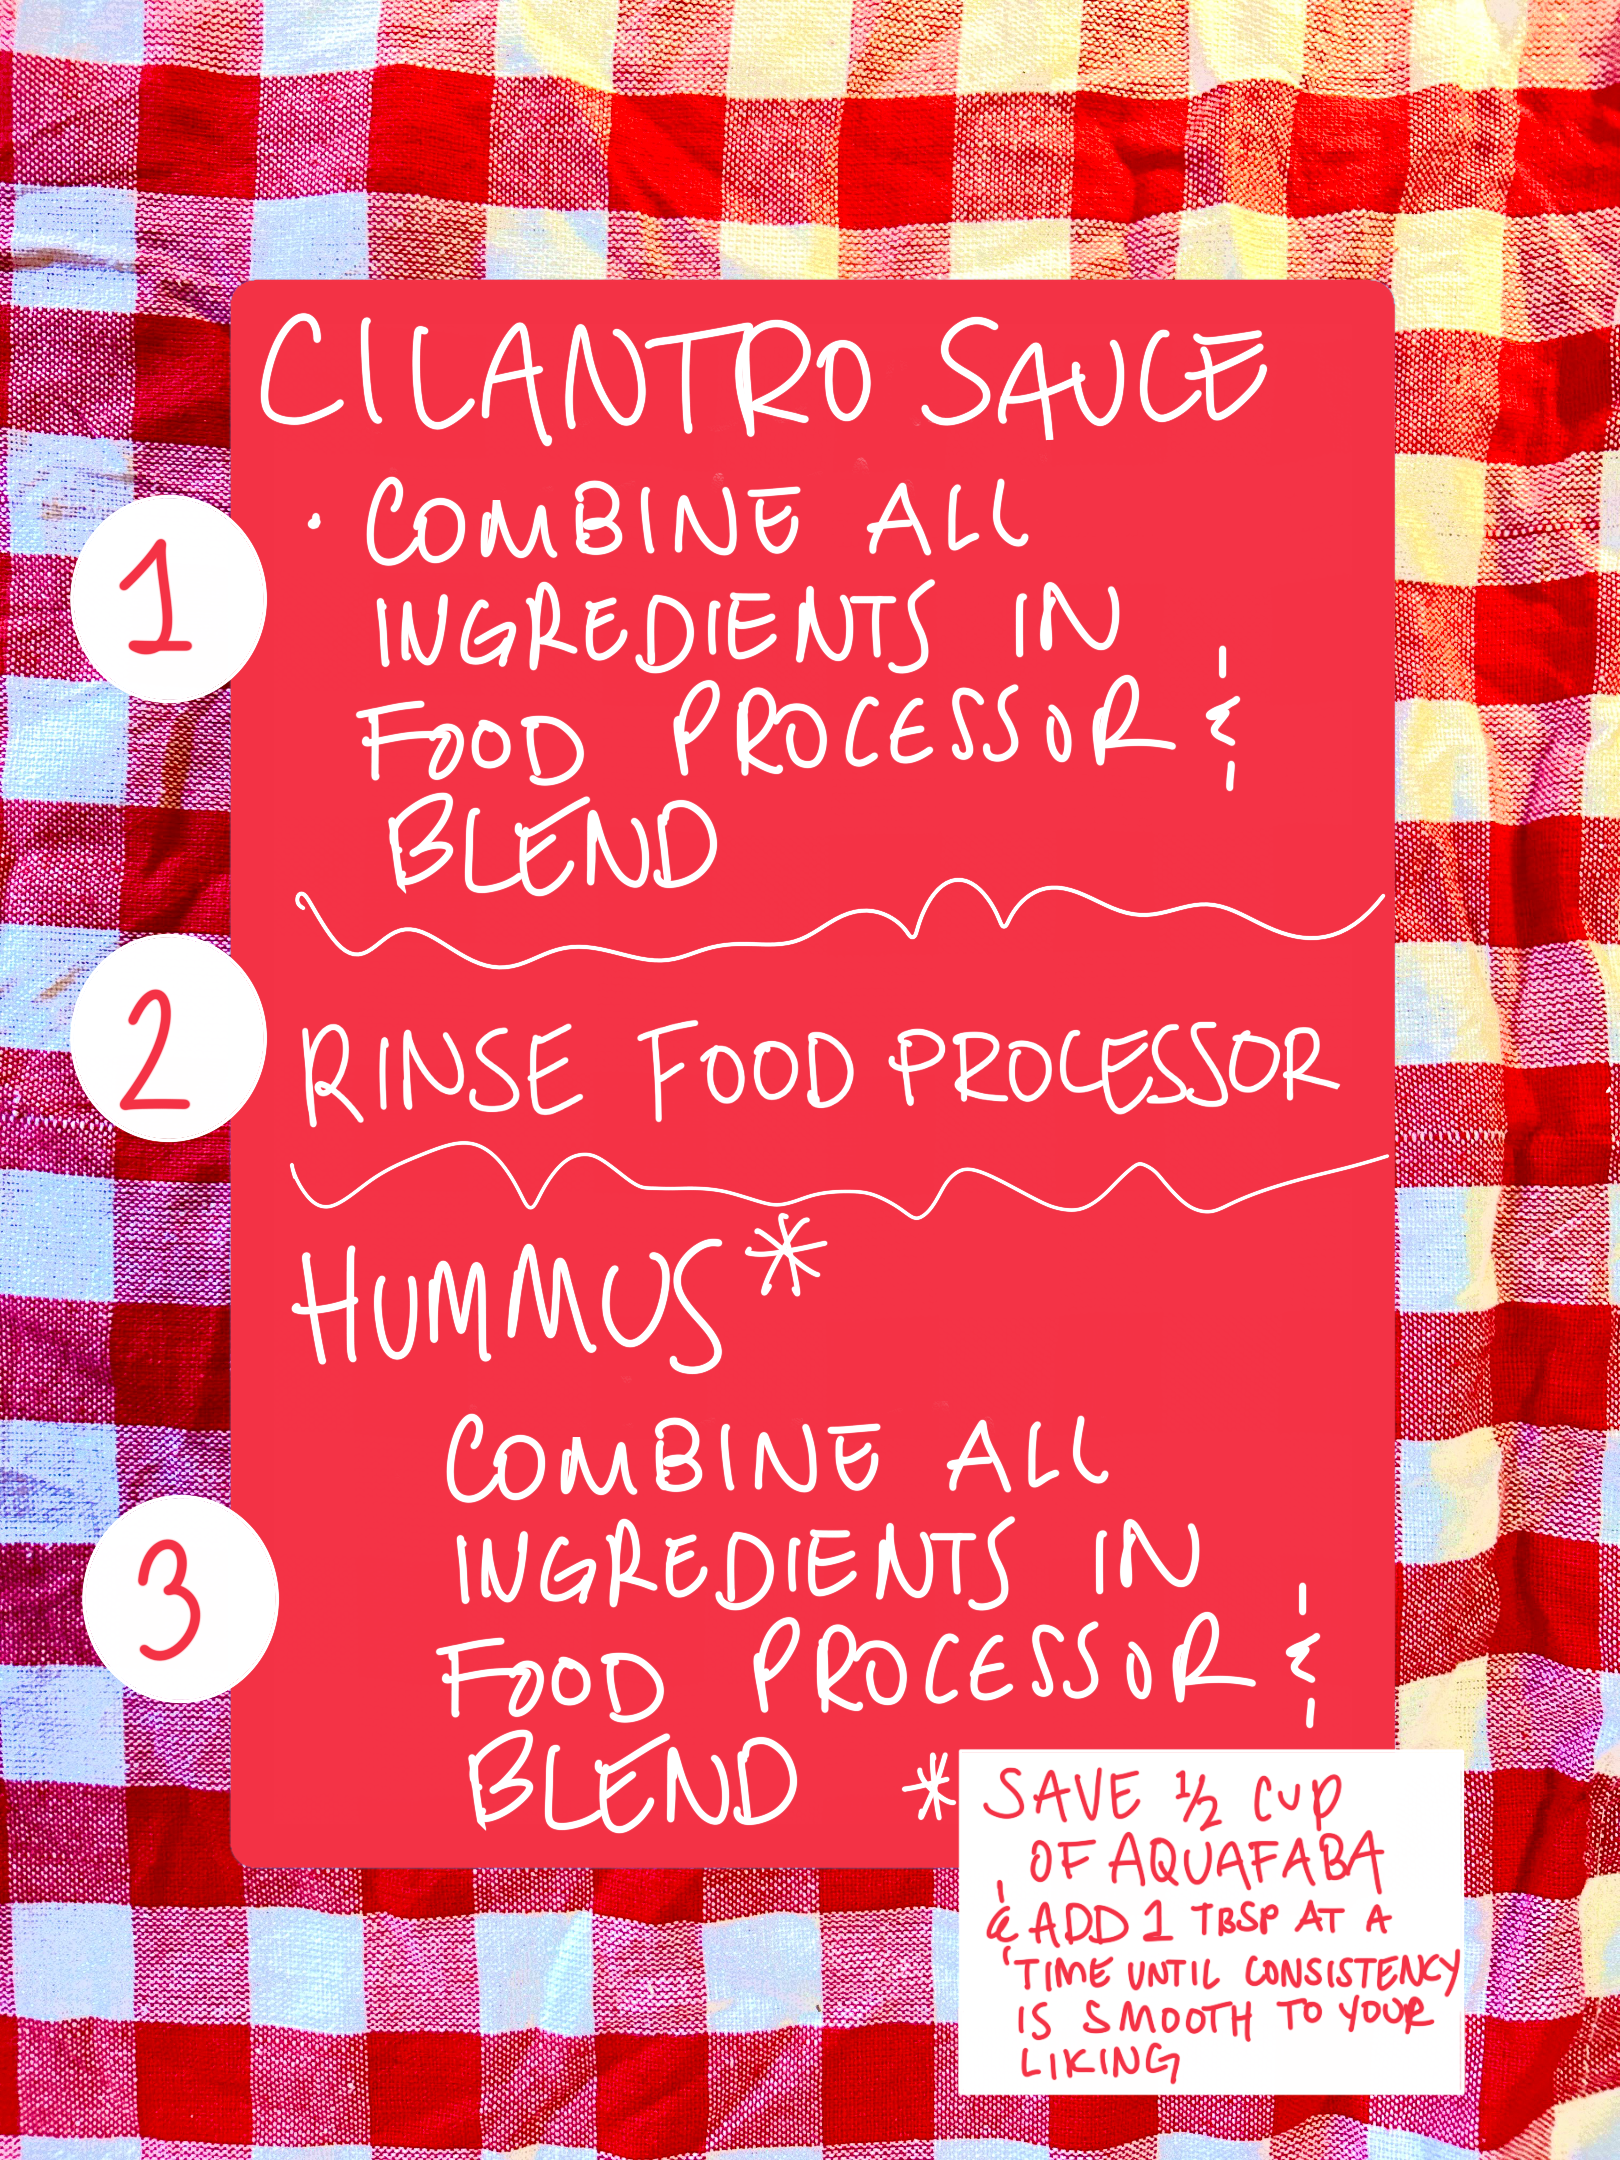 CILANTRO SAUCE
1
· COMBINE ALL
INGREDIENTS IN
FOOD PROCESSOR &
BLEND
2
RINSE FOOD PROCESSOR
HUMMUS*
3
COMBINE ALL
INGREDIENTS IN
FOOD PROCESSOR &
BLEND
* SAVE 1/2 CUP
OF AQUAFABA
& ADD 1 TBSP AT A
TIME UNTIL CONSISTENCY
IS SMOOTH TO YOUR
LIKING